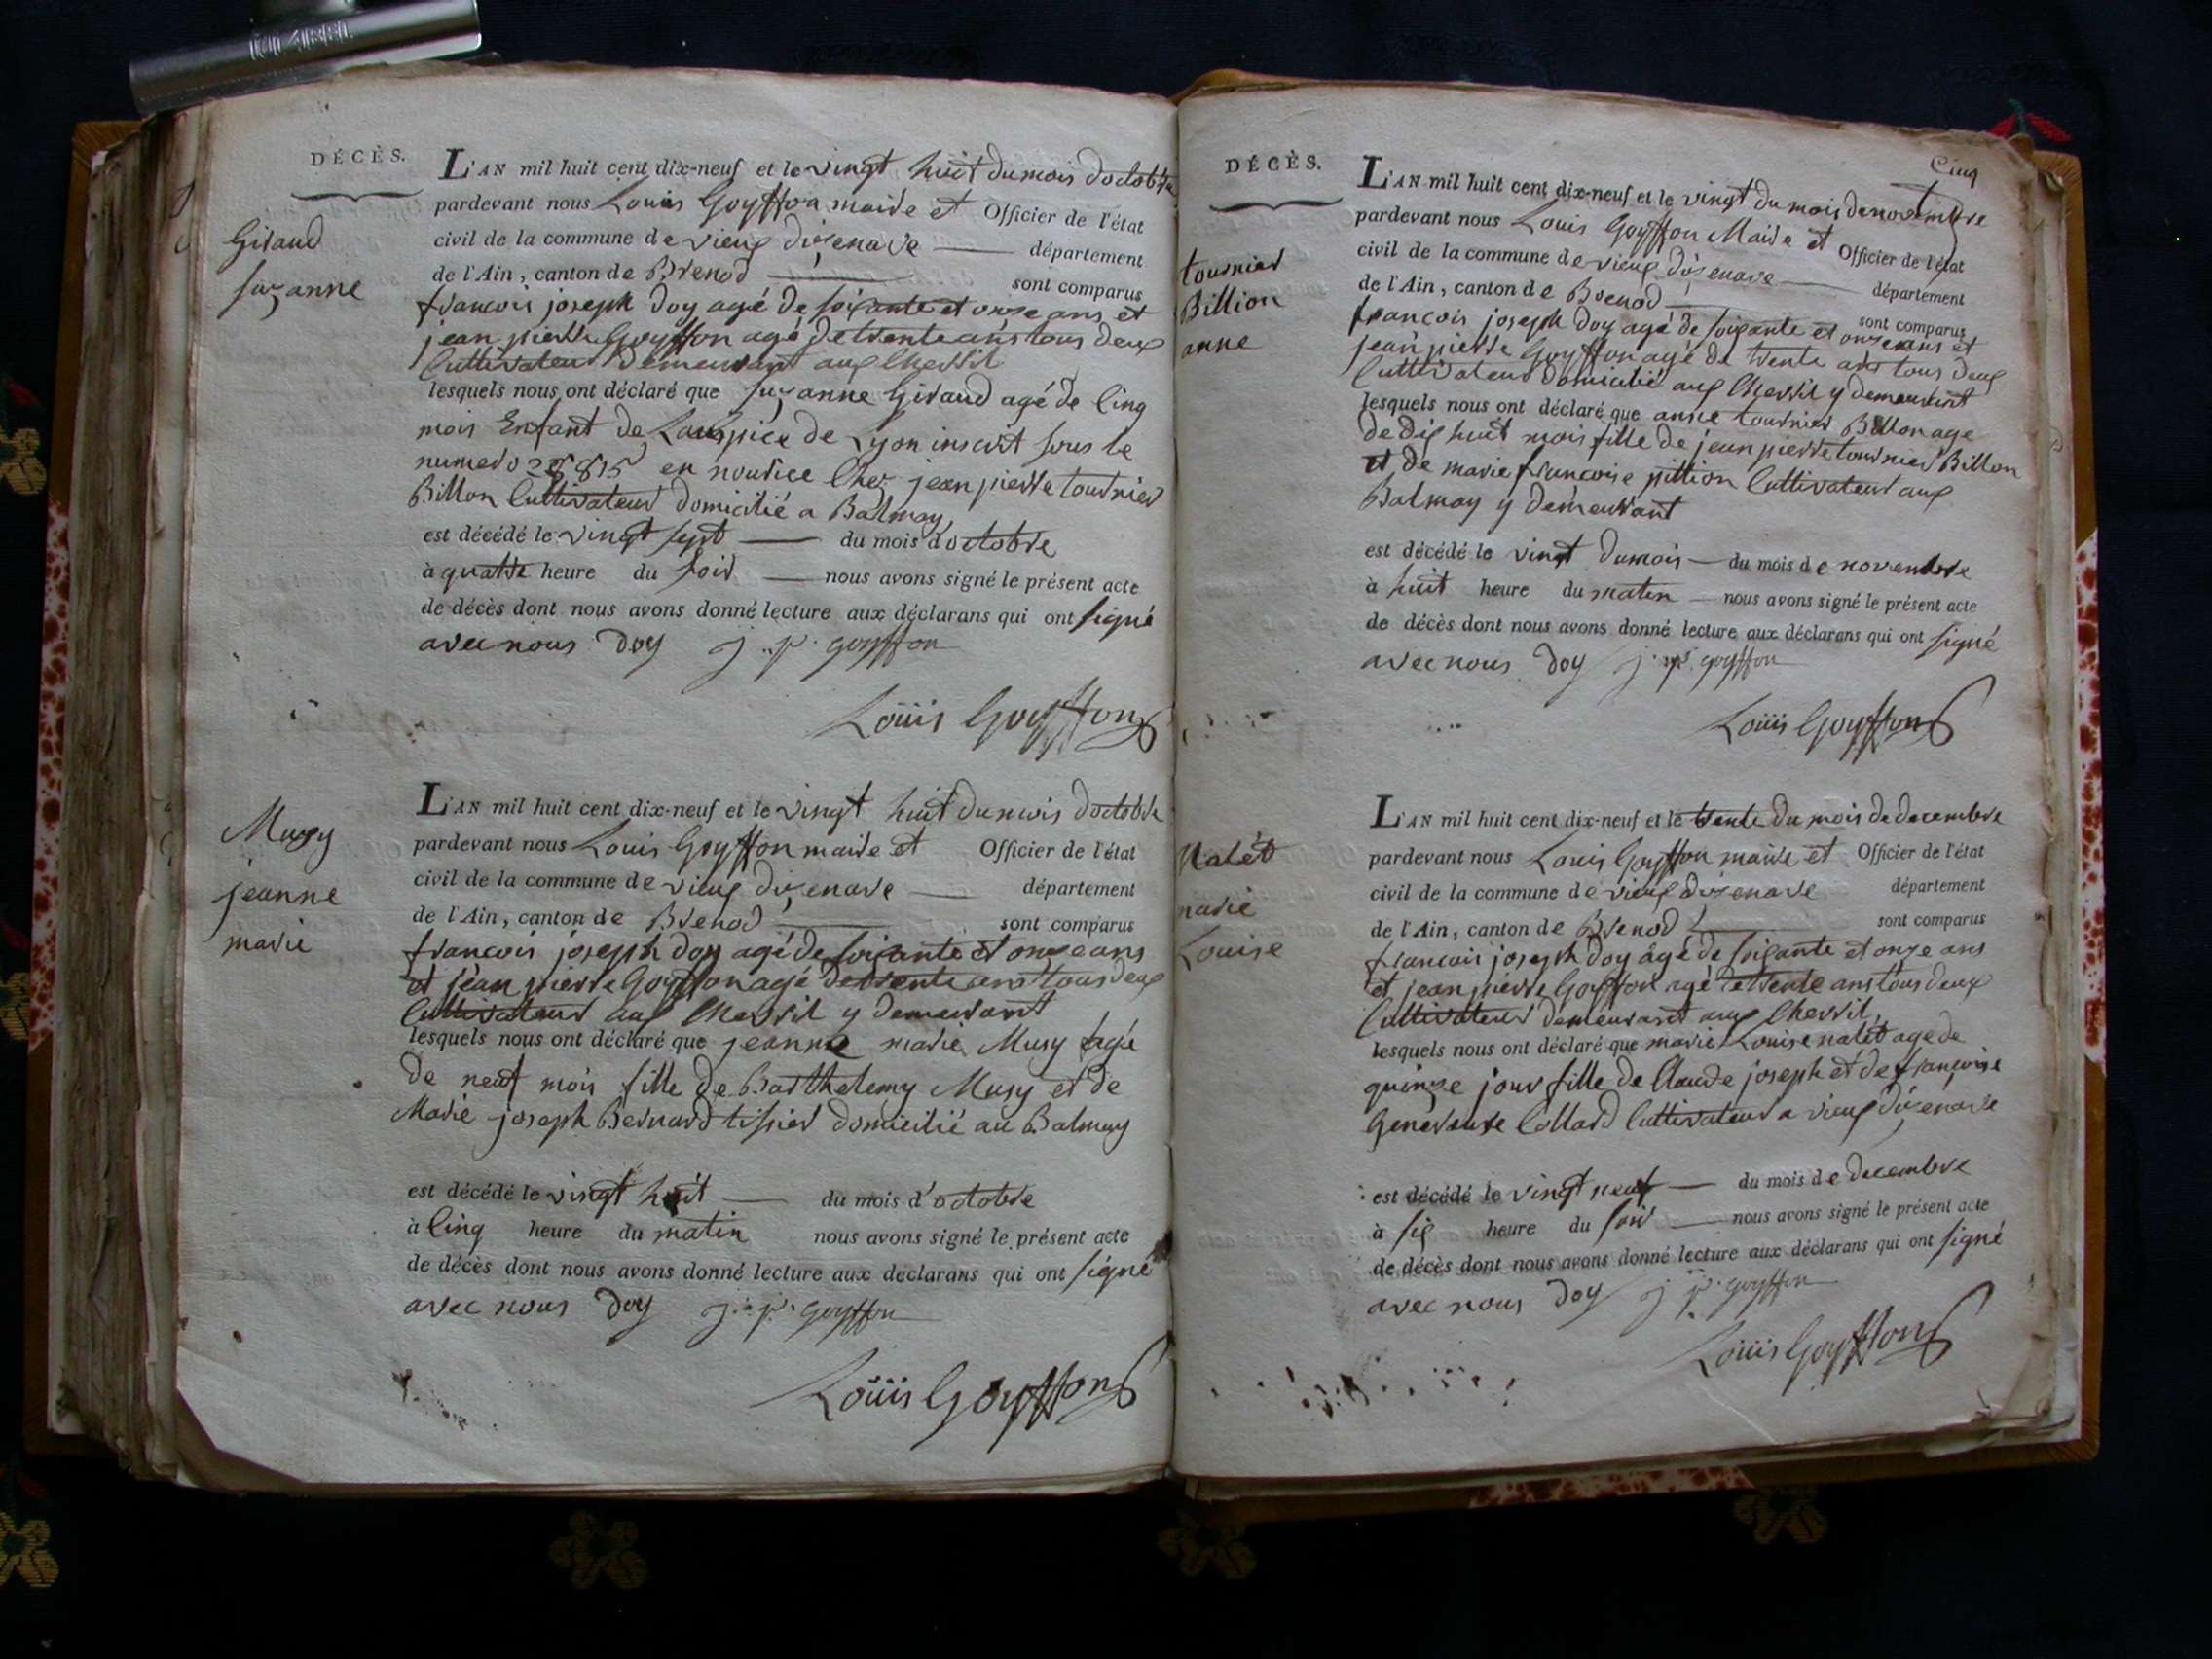 DÉCÈS.
Giraud
suzanne
L'AN mil huit cent dix-neuf et le vingt huit du mois doctobre
pardevant nous Louis Goyffon maire et Officier de l'état
civil de la commune de vieux dizenave département
de l'Ain, canton de Brenod sont comparus
francois joseph doy agé de soixante et onze ans et
jean pierre Goyffon agé de trente ans tous deux
Cultivateur demeurant aux Chevril
lesquels nous ont déclaré que suzanne Giraud agé de Cinq
mois Enfant de Lauspice de Lyon inscrit sous le
numero en nourice Chez jean pierre tournier
Billon Cultivateur domicilié a Balmay
est décédé le vingt sept du mois d'octobre
à quatre heure du soir nous avons signé le présent acte
de décès dont nous avons donné lecture aux déclarans qui ont signé
avec nous doy j. p. goyffon
Louis Goyffon
Musy
jeanne
marie
L'AN mil huit cent dix-neuf et le vingt huit du mois doctobre
pardevant nous Louis Goyffon maire et Officier de l'état
civil de la commune de vieux dizenave département
de l'Ain, canton de Brenod sont comparus
francois joseph doy agé de soixante et onze ans
et jean pierre Goyffon agé de trente ans tous deux
Cultivateur aux Chevril y demeurant
lesquels nous ont déclaré que jeanne marie Musy agé
de neuf mois fille de Barthelemy Musy et de
Marie joseph Bernard tissier domicilié au Balmay
est décédé le vingt huit du mois d'octobre
à Cinq heure du matin nous avons signé le présent acte
de décès dont nous avons donné lecture aux déclarans qui ont signé
avec nous doy j. p. goyffon
Louis Goyffon
Cinq
DÉCÈS.
tournier
Billion
anne
L'AN mil huit cent dix-neuf et le vingt du mois de novembre
pardevant nous Louis Goyffon Maire et Officier de l'état
civil de la commune de vieux dizenave département
de l'Ain, canton de Brenod sont comparus
francois joseph doy agé de soixante et onze ans et
jean pierre Goyffon agé de trente ans tous deux
Cultivateur domicilié aux Chevril y demeurant
lesquels nous ont déclaré que anne tournier Billon age
de dix huit mois fille de jean pierre tournier Billon
et de marie francoise pillion Cultivateur aux
Balmay y demeurant
est décédé le vingt du mois du mois de novembre
à huit heure du matin nous avons signé le présent acte
de décès dont nous avons donné lecture aux déclarans qui ont signé
avec nous doy j. p. goyffon
Louis Goyffon
Nalét
marie
Louise
L'AN mil huit cent dix-neuf et le trente du mois de decembre
pardevant nous Louis Goyffon maire et Officier de l'état
civil de la commune de vieux dizenave département
de l'Ain, canton de Brenod sont comparus
francois joseph doy âgé de soixante et onze ans
et jean pierre Goyffon agé de trente ans tous deux
Cultivateur demeurant aux Chevril
lesquels nous ont déclaré que marie Louise nalét age de
quinze jour fille de Claude joseph et de françoise
Collard Cultivateur a vieux dizenave
est décédé le vingt neuf du mois de decembre
à six heure du soir nous avons signé le présent acte
de décès dont nous avons donné lecture aux déclarans qui ont signé
avec nous doy j. p. goyffon
Louis Goyffon